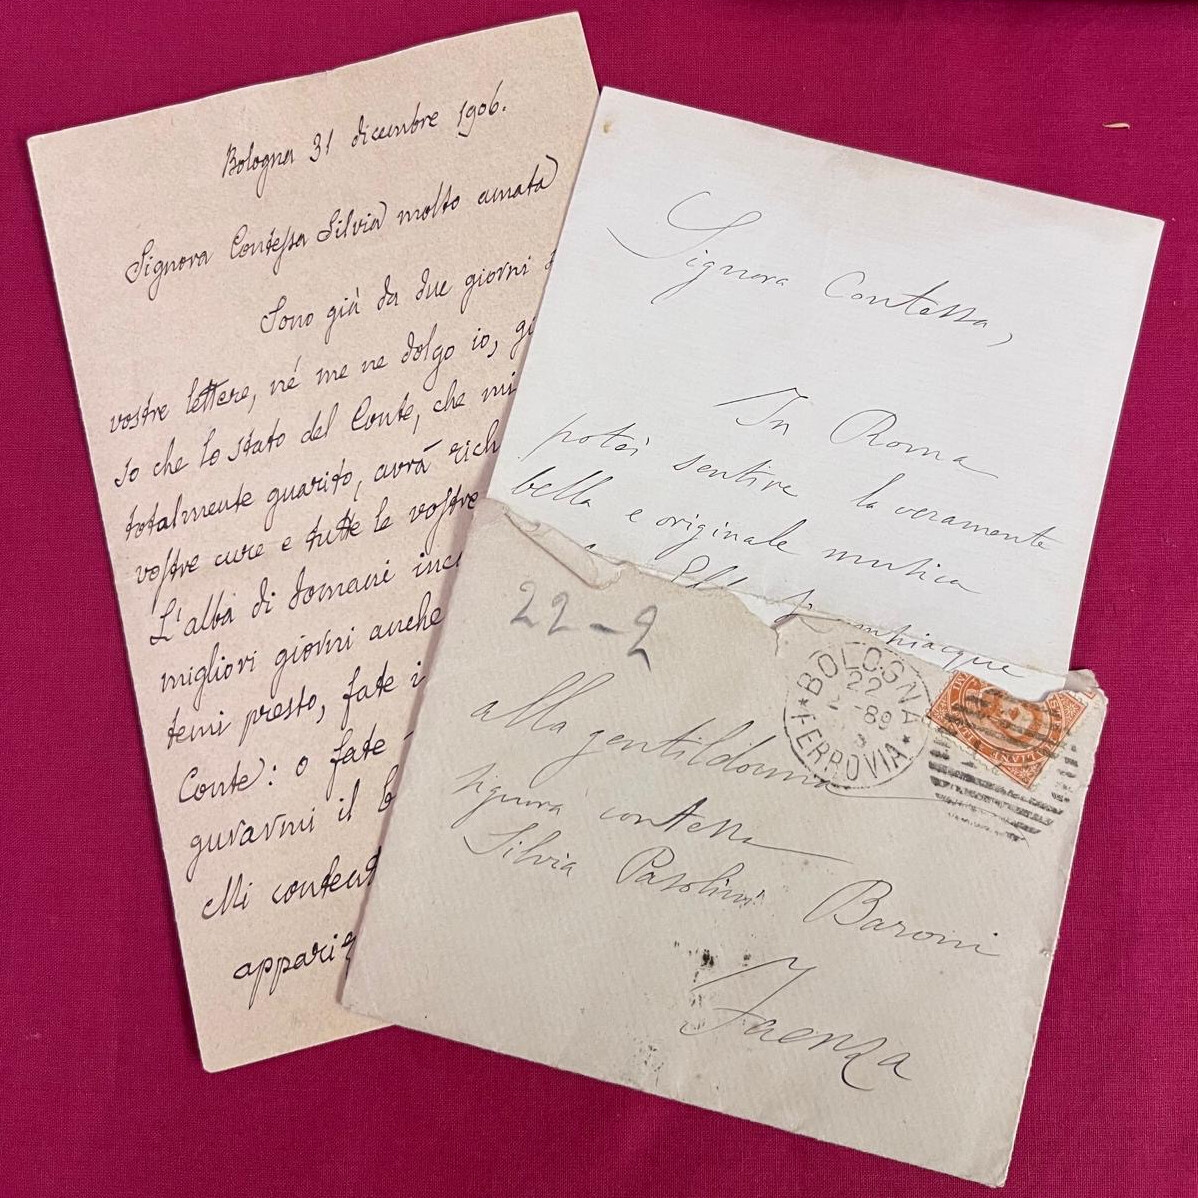 Bologna 31 dicembre 1906.
Signora Contessa Silvia molto amata
Sono già da due giorni
vostre lettere, né me ne dolgo io,
so che lo stato del Conte, che mi
totalmente guarito, avrà
vostre cure e tutte le vostre
L'alba di domani
migliori giorni anche
temi presto, fate
Conte: o fate
gurarmi il
Mi
Signora Contessa,
In Roma
potei sentire la veramente
bella e originale musica
22-2
BOLOGNA
22
89
FERROVIA
alla gentildonna
signora contessa
Silvia Pasolini Baroni
Faenza